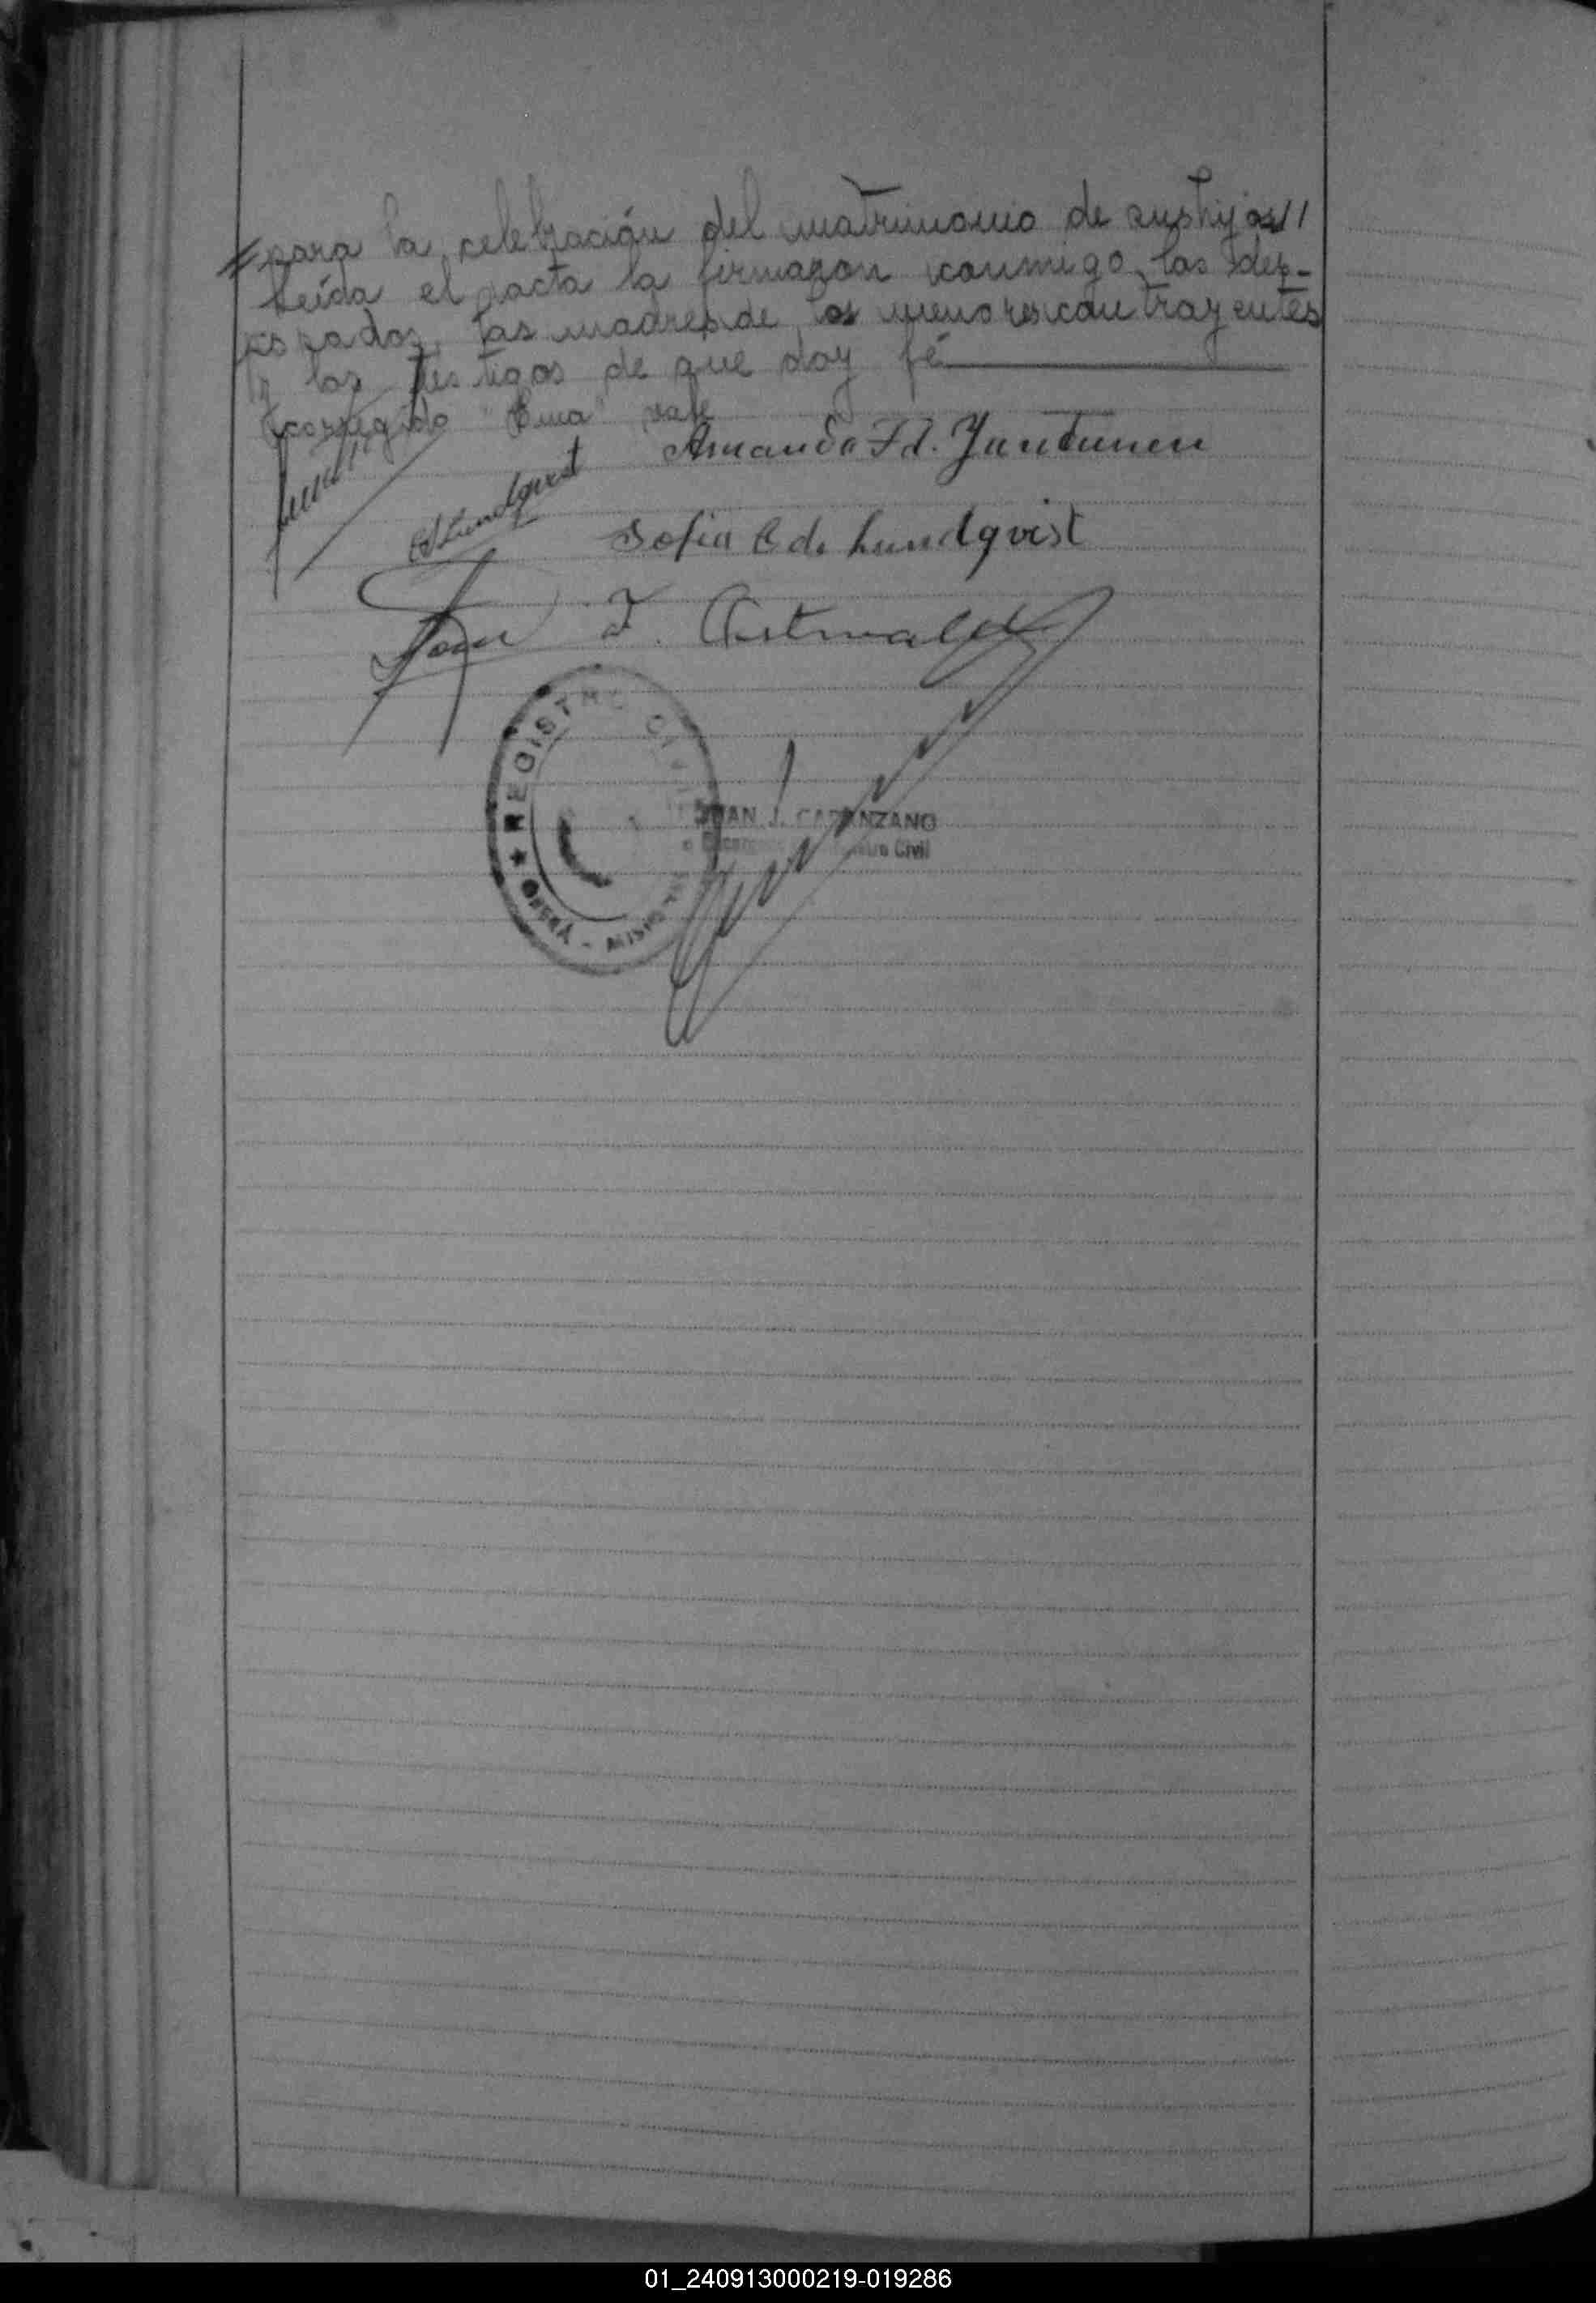 para la celebración del matrimonio de sus hijos //
Leída el acta la firmaron conmigo, los des-
posados, las madres de los menores contrayentes
y los testigos de que doy fé
corregido "Ema" vale
Amanda F d. Jantunen
Lundqvist
Sofia C de Lundqvist
Juan F.
REGISTRO CIVIL
★ OBERÁ - MISIONES
JUAN J. CAPANZANO
Civil
01_240913000219-019286